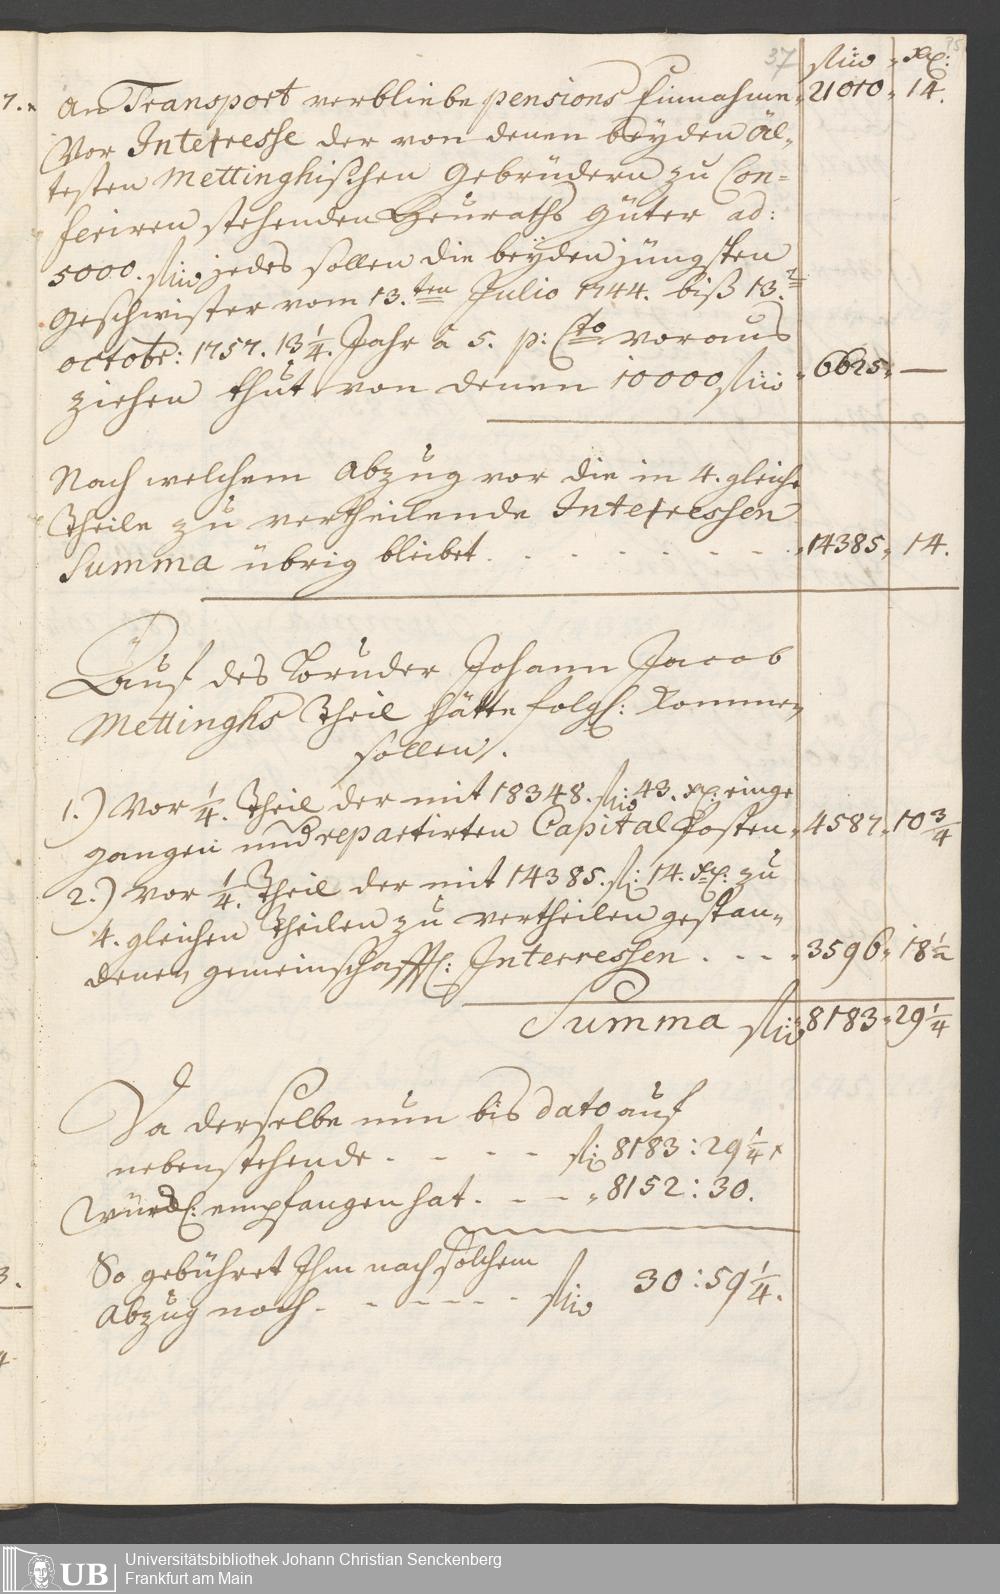 37
75
fl. " xr:
An Transport verbliebe pensions Einnahme " 21010 " 14.
Vor Interesse der von denen beyden äl-
testen Mettinghischen Gebrüdern zu Con-
feriren stehenden Heuraths Güter ad:
5000. fl. jedes sollen die beyden jüngsten
Geschwister vom 13.ten Julio 1744. biß 13.t
octobr: 1757. 13 1/4. Jahr à 5. p: Cto voraus
ziehen thut von denen 10000 fl. " 6625 " —
Nach welchem Abzug vor die in 4. gleiche
Theile zu vertheilende Interessen
Summa übrig bleibet . - - - - - - " 14385 " 14.
Auf des Bruder Johann Jacob
Mettinghs Theil hätte folgl: kommen
sollen.
1.) Vor 1/4. Theil der mit 18348. fl: 43. xr: einge
gangen und repartirten Capital Posten " 4587 " 10 3/4
2.) Vor 1/4. Theil der mit 14385. fl: 14. xr: zu
4. gleichen Theilen zu vertheilen gestan-
denen gemeinschafftl: Interressen . - - " 3596 " 18 1/2
Summa fl: 8183 " 29 1/4
Da derselbe nun bis dato auf
nebenstehende - - - - fl: 8183 : 29 1/4 x
würckl: empfangen hat . - - " 8152 : 30.
So gebühret Ihm nach solchem
Abzug noch . - - - - - fl. 30 : 59 1/4.
7.
3.
4
UB Universitätsbibliothek Johann Christian Senckenberg
Frankfurt am Main